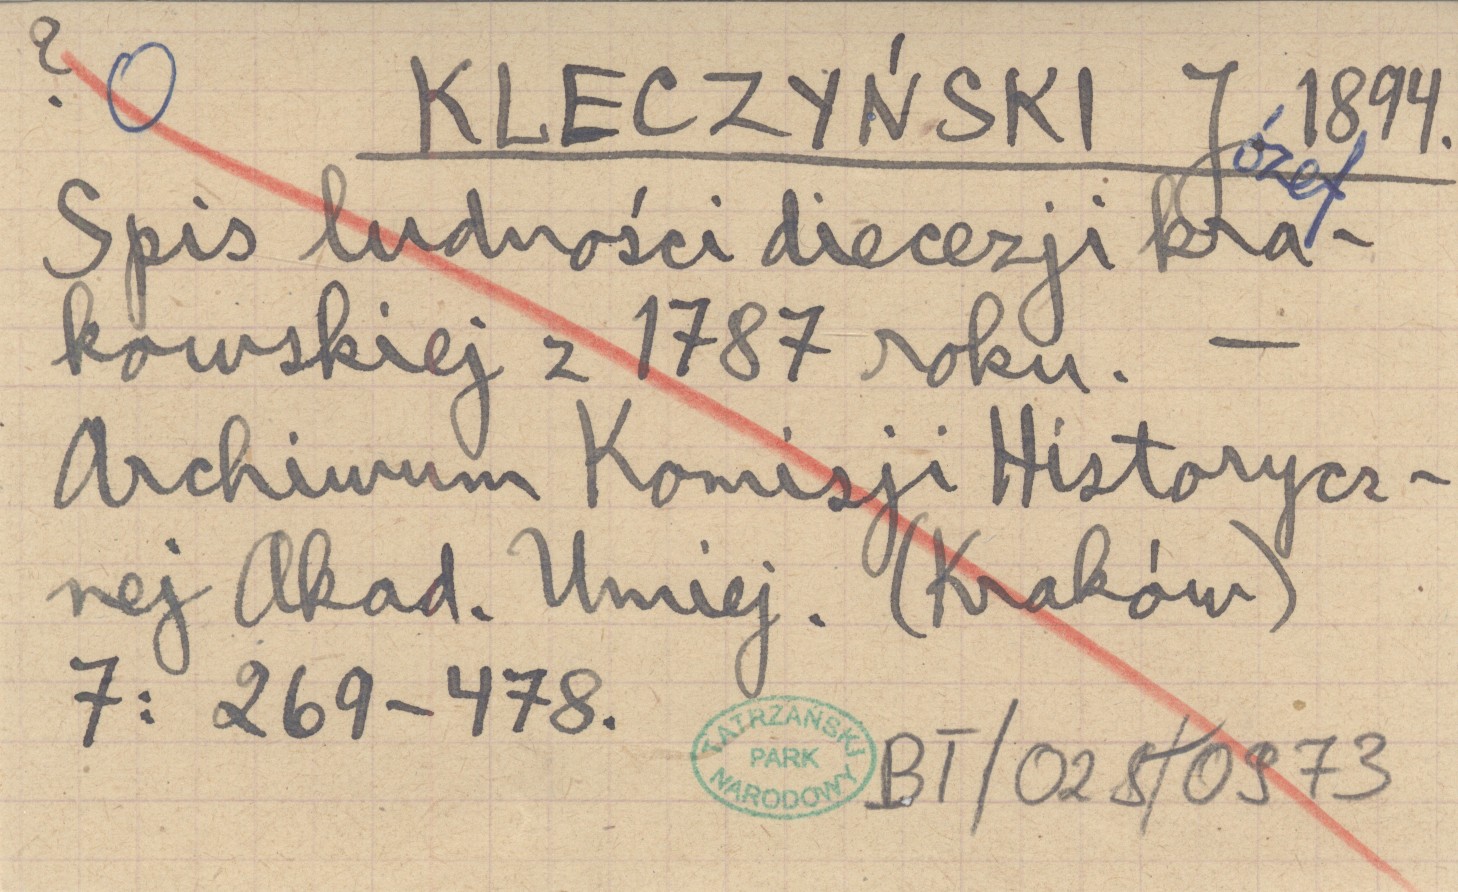 ? O
KLECZYŃSKI Józef 1894.
Spis ludności diecezji kra-
kowskiej z 1787 roku. —
Archiwum Komisji Historycz-
nej Akad. Umiej. (Kraków)
7: 269-478.
TATRZAŃSKI
PARK
NARODOWY
BT/025/0973